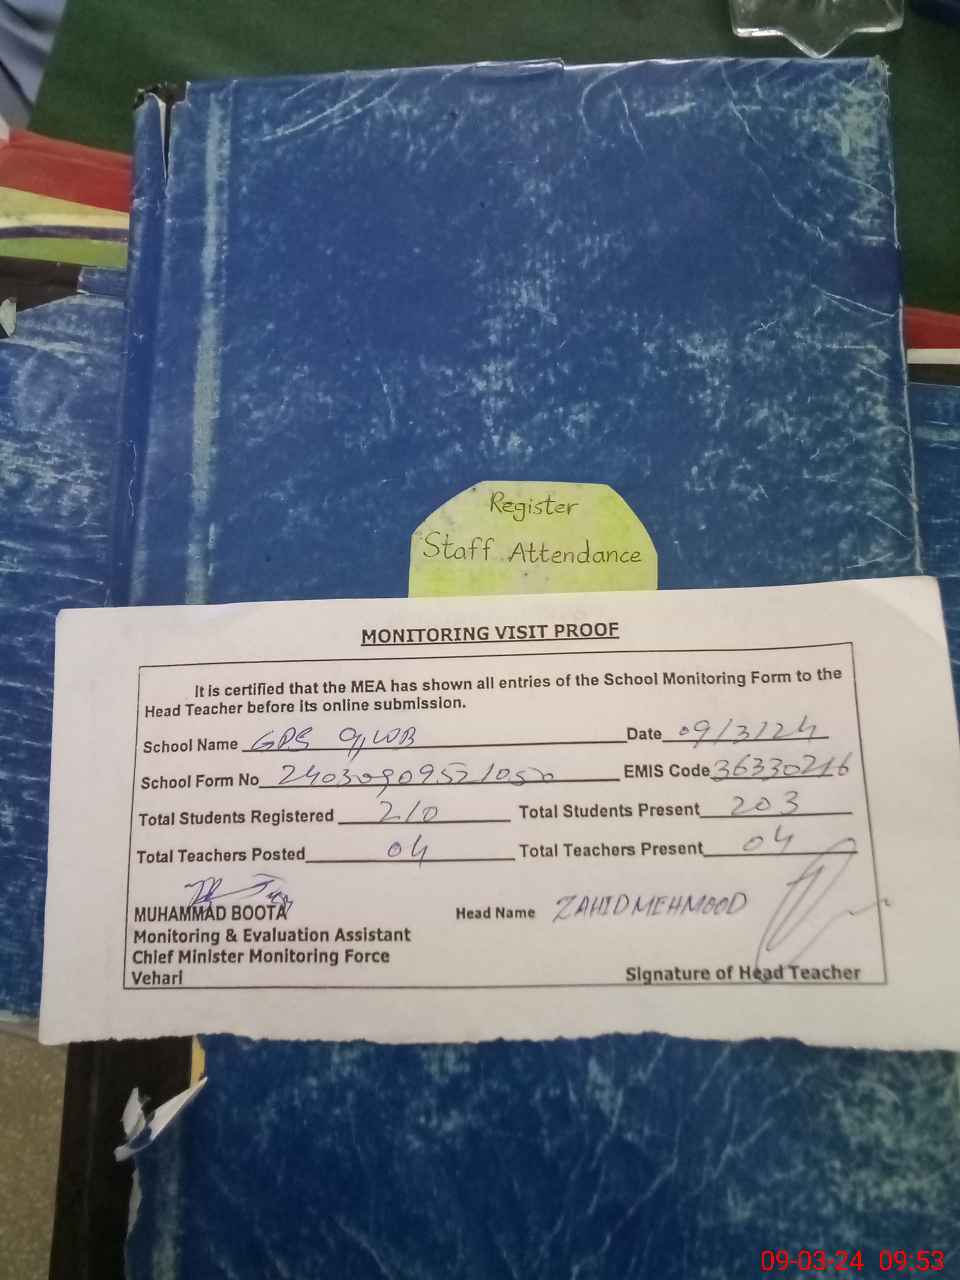 Register
Staff Attendance
MONITORING VISIT PROOF
It is certified that the MEA has shown all entries of the School Monitoring Form to the
Head Teacher before its online submission.
School Name GPS 9/WB Date 09/3/24
School Form No EMIS Code 36330216
Total Students Registered 210 Total Students Present 203
Total Teachers Posted 04 Total Teachers Present 04
MUHAMMAD BOOTA Head Name ZAHID MEHMOOD
Monitoring & Evaluation Assistant
Chief Minister Monitoring Force
Vehari Signature of Head Teacher
09-03-24 09:53